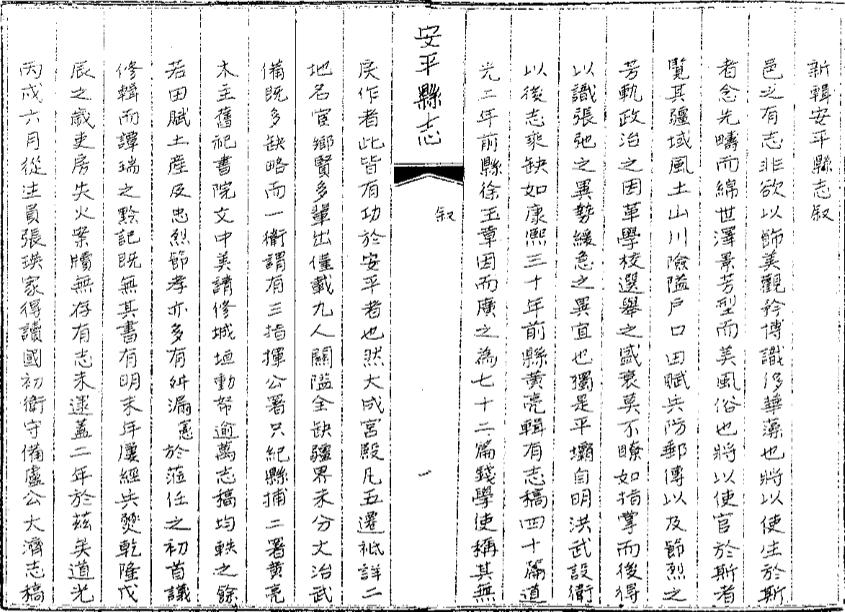 新輯安平縣志叙
邑之有志非欲以飾美觀矜博識侈華藻也將以使生於斯
者念先疇而綿世澤景芳型而美風俗也將以使官於斯者
覽其疆域風土山川險隘戶口田賦兵防郵傳以及節烈之
芳軌政治之因革學校選舉之盛衰莫不瞭如指掌而後得
以識張弛之異勢緩急之異宜也獨是平壩自明洪武設衛
以後志乘缺如康熙三十年前縣黄亮輯有志稿四十篇道
光二年前縣徐玉章因而廣之為七十二篇錢學使稱其無
安平縣志
叙
一
戾作者此皆有功於安平者也然大成宮殿凡五遷祗詳二
地名宦鄉賢多輩出僅載九人關隘全缺疆界未分文治武
備既多缺略而一衛謂有三指揮公署只紀縣捕二署黄亮
木主舊祀書院文中美請修城垣動帑逾萬志稿均軼之餘
若田賦土産及忠烈節孝亦多有舛漏憲於蒞任之初首議
修輯而譚瑞之黔記既無其書有明末年屢經兵燹乾隆戊
辰之歲吏房失火案牘無存有志未逮蓋二年於茲矣道光
丙戌六月從生員張珙家得讀國初衛守備盧公大濟志稿